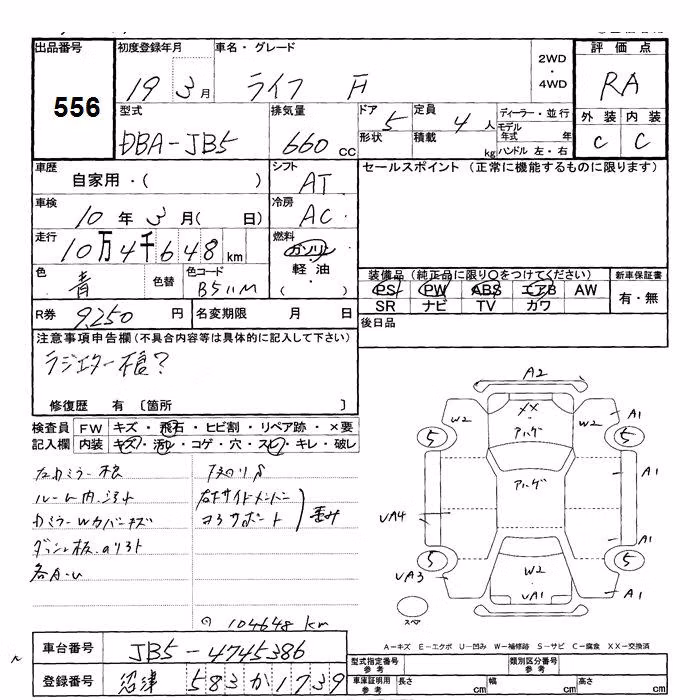 出品番号 初度登録年月 車名・グレード 2WD・4WD 評価点
556 19 3月 ライフ F RA
型式 排気量 ドア 形状 5 定員 4人 積載 kg ディーラー・並行 モデル年式 年 ハンドル 左・右 外装 内装
DBA-JB5 660cc C C
車歴 シフト セールスポイント (正常に機能するものに限ります)
自家用・( ) AT
車検 冷房
10年3月( 日) AC
走行 燃料
10万4千648km ガソリン
軽油
( )
色 色替 色コード 装備品 (純正品に限り○をつけてください) 新車保証書
青 B511M PS PW ABS エアB AW 有・無
SR ナビ TV カワ
R券 9,250円 名変期限 月 日 後日品
注意事項申告欄 (不具合内容等は具体的に記入して下さい)
ラジエター
修復歴 有 〔箇所 〕
検査員 FW キズ・飛石・ヒビ割・リペア跡・×要
記入欄 内装 キズ・汚れ・コゲ・穴・スレ・キレ・破レ
左カミラー
ルーム内
右サイドメンバー
コアサポート
各A・U
104648 km
A2
XX
W2 A1
アハゲ
5 5
アハゲ A1
UA4
A1
5 5
UA3 W2 A1
UA1
スペア
A-キズ E-エクボ U-凹み W-補修跡 S-サビ C-腐食 XX-交換済
車台番号 JB5-4745386
型式指定番号 参考 類別区分番号 参考
登録番号 沼津 583 か 1739
車庫証明用 参考 長さ cm 幅 cm 高さ cm